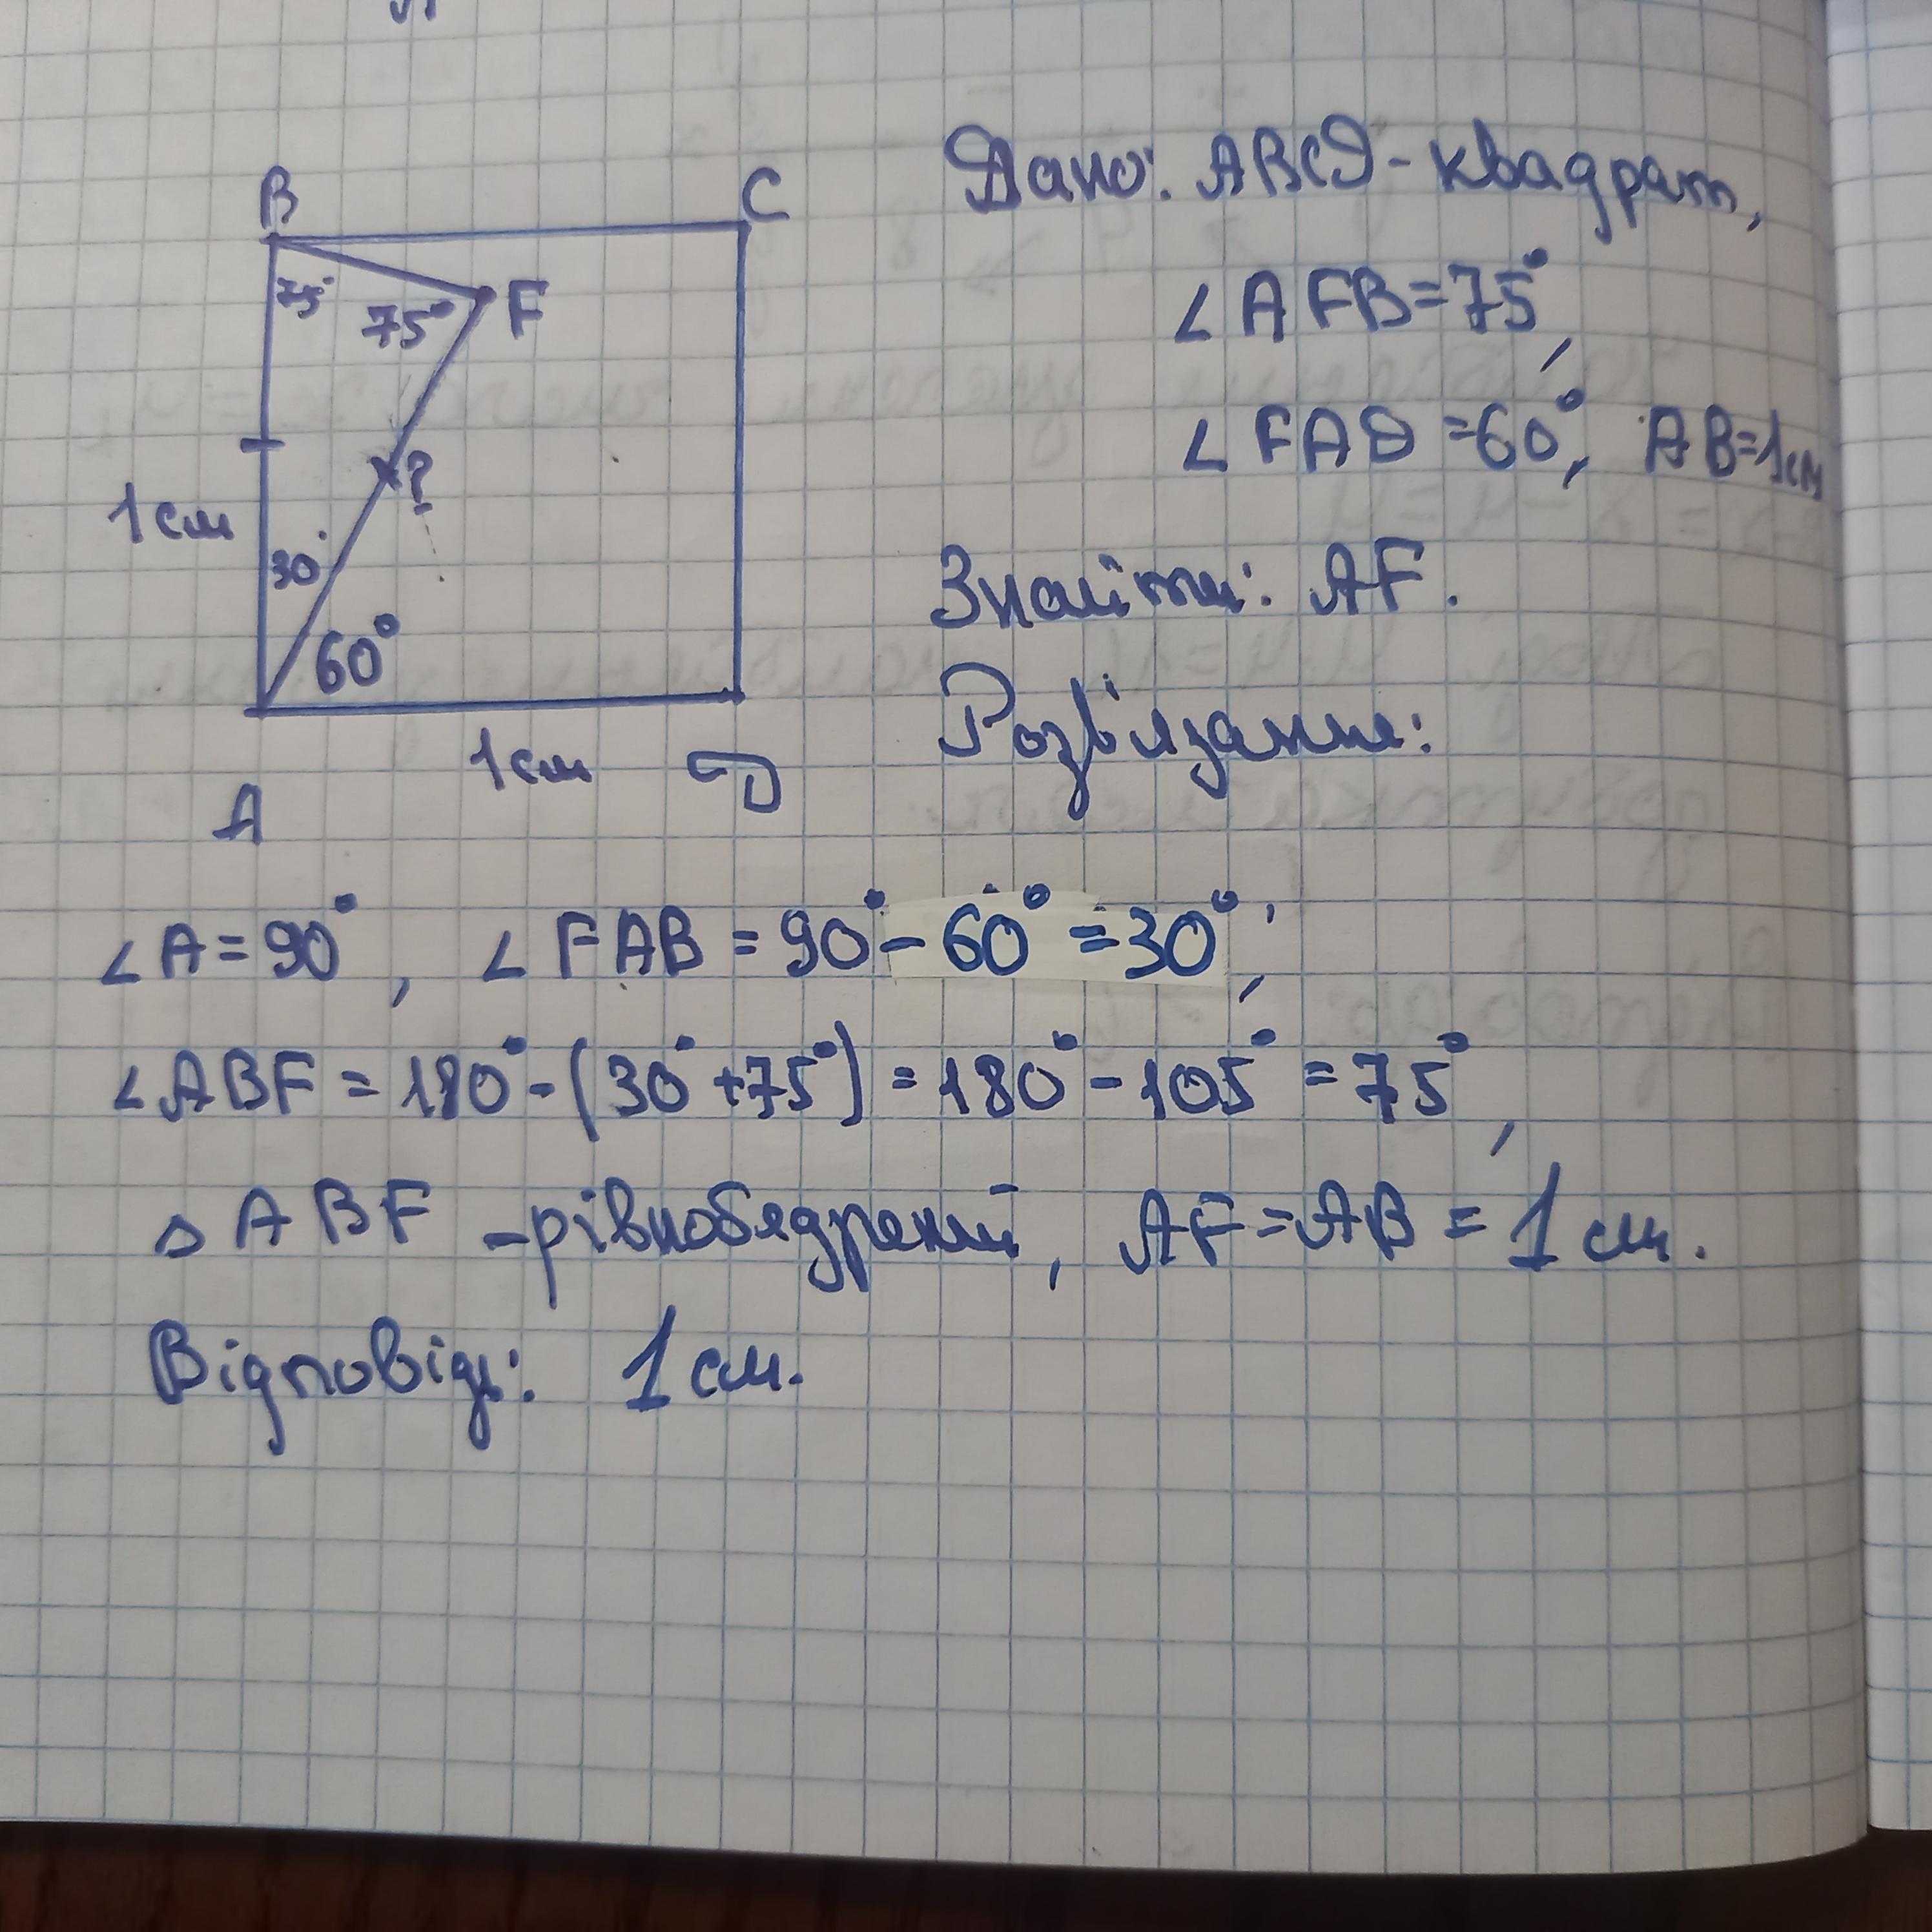 B
C
75°
75°
F
?
1см
30°
60°
1см
D
A
Дано: ABCD - квадрат,
∠AFB=75°,
∠FAD=60°, AB=1см
Знайти: AF.
Розв'язання:
∠A=90°, ∠FAB=90°-60°=30°;
∠ABF=180°-(30°+75°)=180°-105°=75°,
△ABF -рівнобедрений, AF=AB=1см.
Відповідь: 1см.